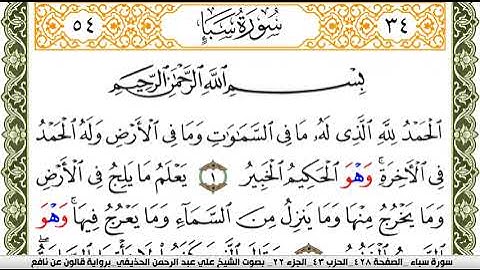 ٥٤ سُورَةُ سَبَإٍ ٣٤
بِسْمِ اللَّهِ الرَّحْمَٰنِ الرَّحِيمِ
الْحَمْدُ لِلَّهِ الَّذِي لَهُ مَا فِي السَّمَاوَاتِ وَمَا فِي الْأَرْضِ وَلَهُ الْحَمْدُ
فِي الْآخِرَةِ وَهْوَ الْحَكِيمُ الْخَبِيرُ ١ يَعْلَمُ مَا يَلِجُ فِي الْأَرْضِ
وَمَا يَخْرُجُ مِنْهَا وَمَا يَنزِلُ مِنَ السَّمَاءِ وَمَا يَعْرُجُ فِيهَا وَهْوَ
سورة سباء _ الصفحة ٤٢٨ _ الحزب ٤٣ _ الجزء ٢٢ _ بصوت الشيخ علي عبد الرحمن الحذيفي _ برواية قالون عن نافع